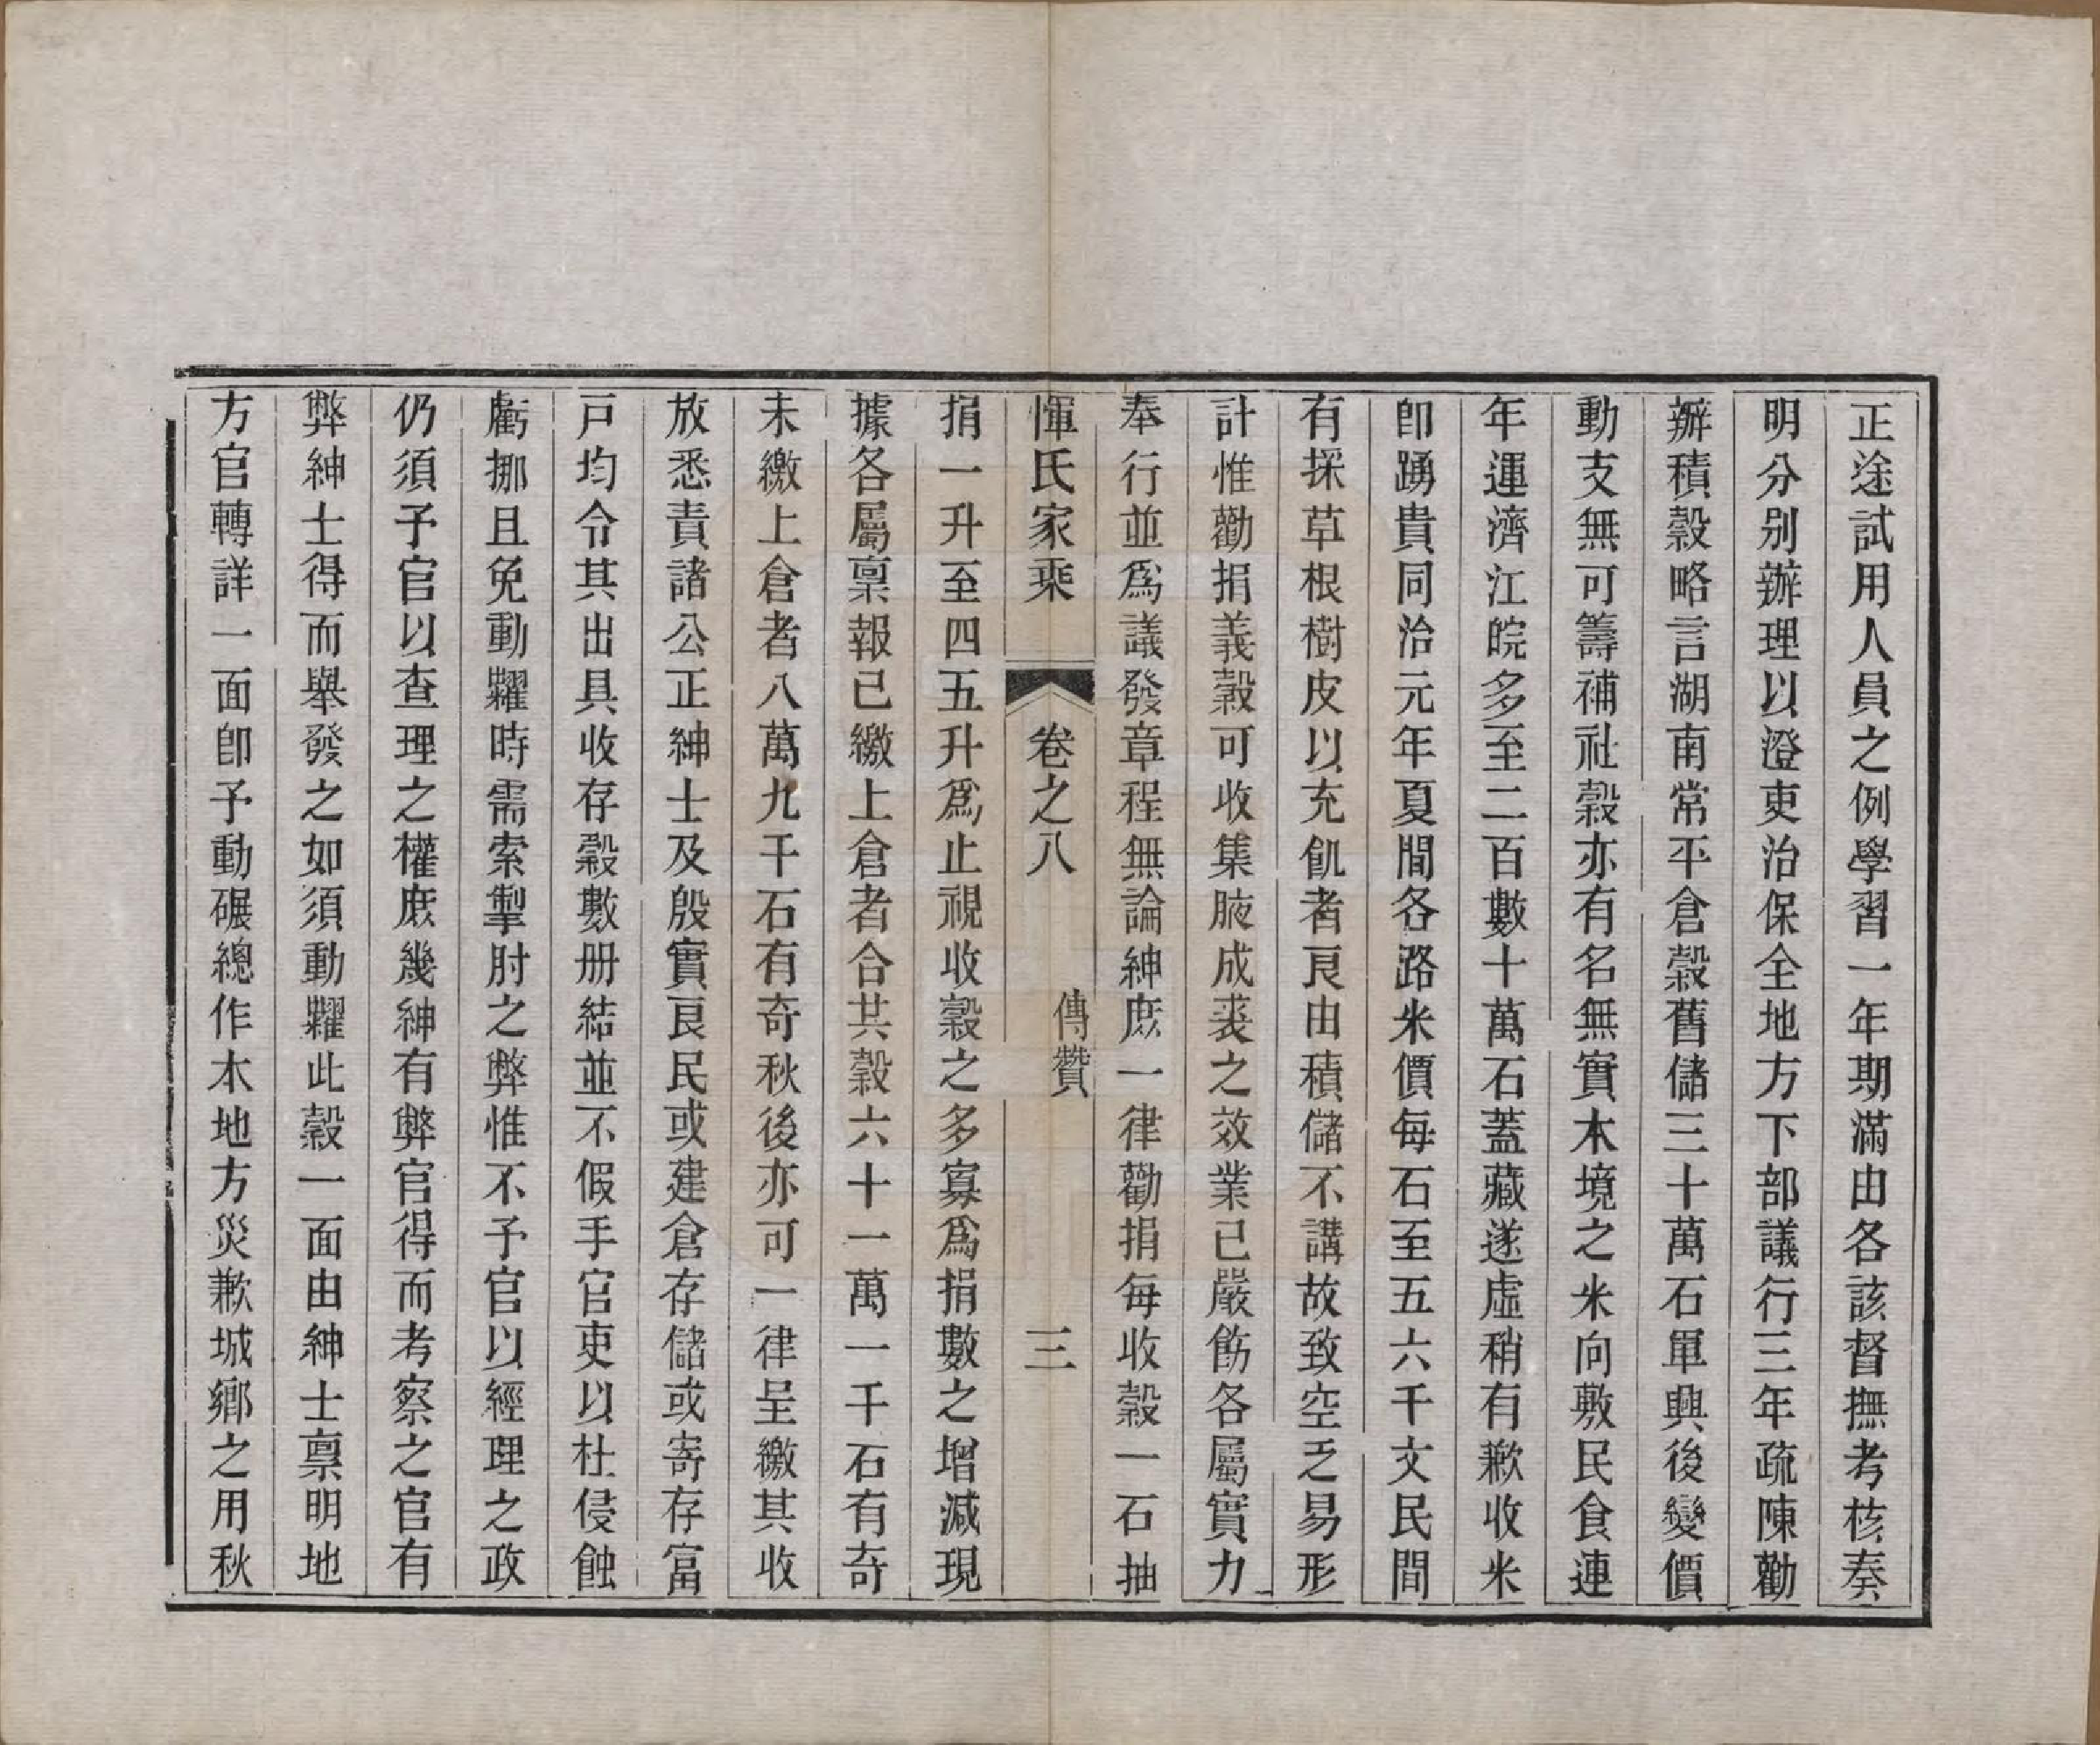 正途試用人員之例學習一年期滿由各該督撫考核奏
明分别辦理以澄吏治保全地方下部議行三年疏陳勸
辦積穀略言湖南常平倉穀舊儲三十萬石軍興後變價
動支無可籌補社穀亦有名無實本境之米向敷民食連
年運濟江皖多至二百數十萬石蓋藏遂虛稍有歉收米
卽踴貴同治元年夏間各路米價每石至五六千文民間
有採草根樹皮以充飢者良由積儲不講故致空乏易形
計惟勸捐義穀可收集腋成裘之效業已嚴飭各屬實力
奉行並爲議發章程無論紳庶一律勸捐每收穀一石抽
惲氏家乘 卷之八 傳贊 三
捐一升至四五升爲止視收穀之多寡爲捐數之增減現
據各屬稟報已繳上倉者合共穀六十一萬一千石有奇
未繳上倉者八萬九千石有奇秋後亦可一律呈繳其收
放悉責諸公正紳士及殷實良民或建倉存儲或寄存富
戸均令其出具收存穀數册結並不假手官吏以杜侵蝕
虧挪且免動糶時需索掣肘之弊惟不予官以經理之政
仍須予官以查理之權庶幾紳有弊官得而考察之官有
弊紳士得而舉發之如須動糶此穀一面由紳士稟明地
方官轉詳一面卽予動碾總作本地方災歉城鄉之用秋